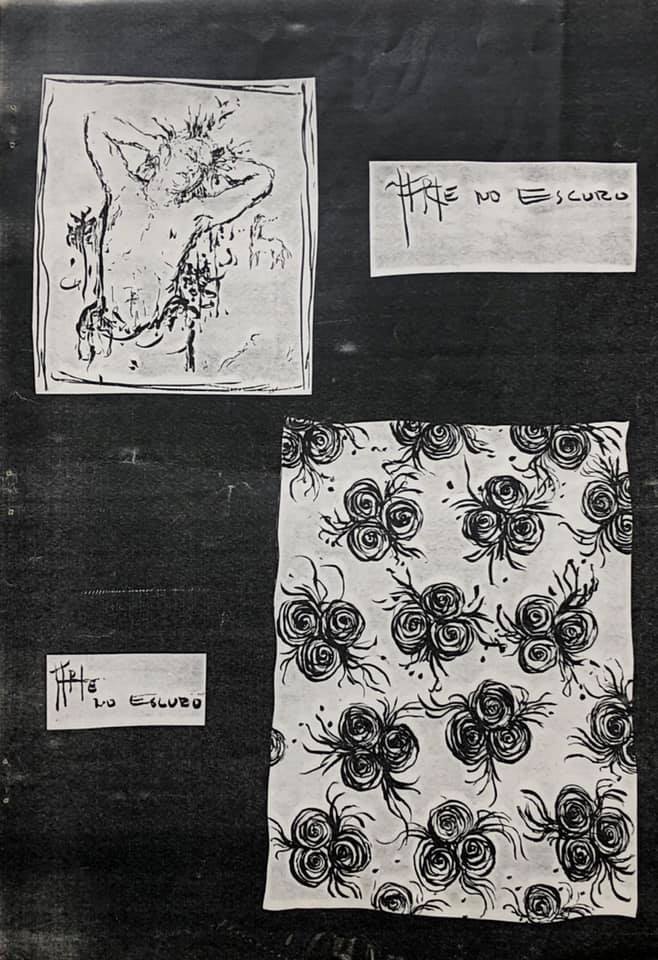 ARTE NO ESCURO
ARTE
NO ESCURO